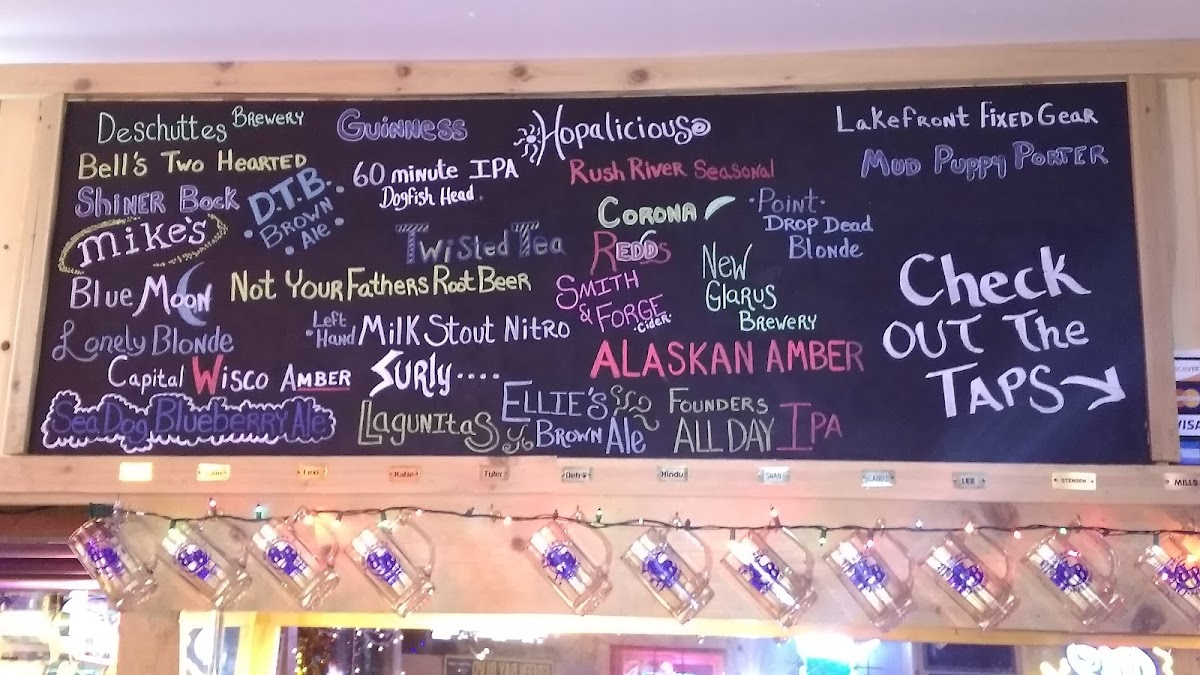 Deschuttes Brewery
Guinness
Hopalicious
Lakefront Fixed Gear
Bell's Two Hearted
60 minute IPA
Dogfish Head.
Rush River Seasonal
Mud Puppy Porter
Shiner Bock
D.T.B.
Brown
Ale
Corona
Point
Drop Dead
Blonde
mike's
Twisted Tea
Redds
New
Glarus
Brewery
Check
OUT The
TAPS
Blue Moon
Not Your Fathers Root Beer
Smith
& Forge
cider.
Lonely Blonde
Left
Hand
Milk Stout Nitro
Alaskan Amber
Capital Wisco Amber
Surly....
Sea Dog Blueberry Ale
Lagunitas
Ellie's
Brown Ale
Founders
All Day IPA
Lexi
Katie
Tyler
Deb
Hindu
SHAN
LEE
STENSEN
MILLS
VISA